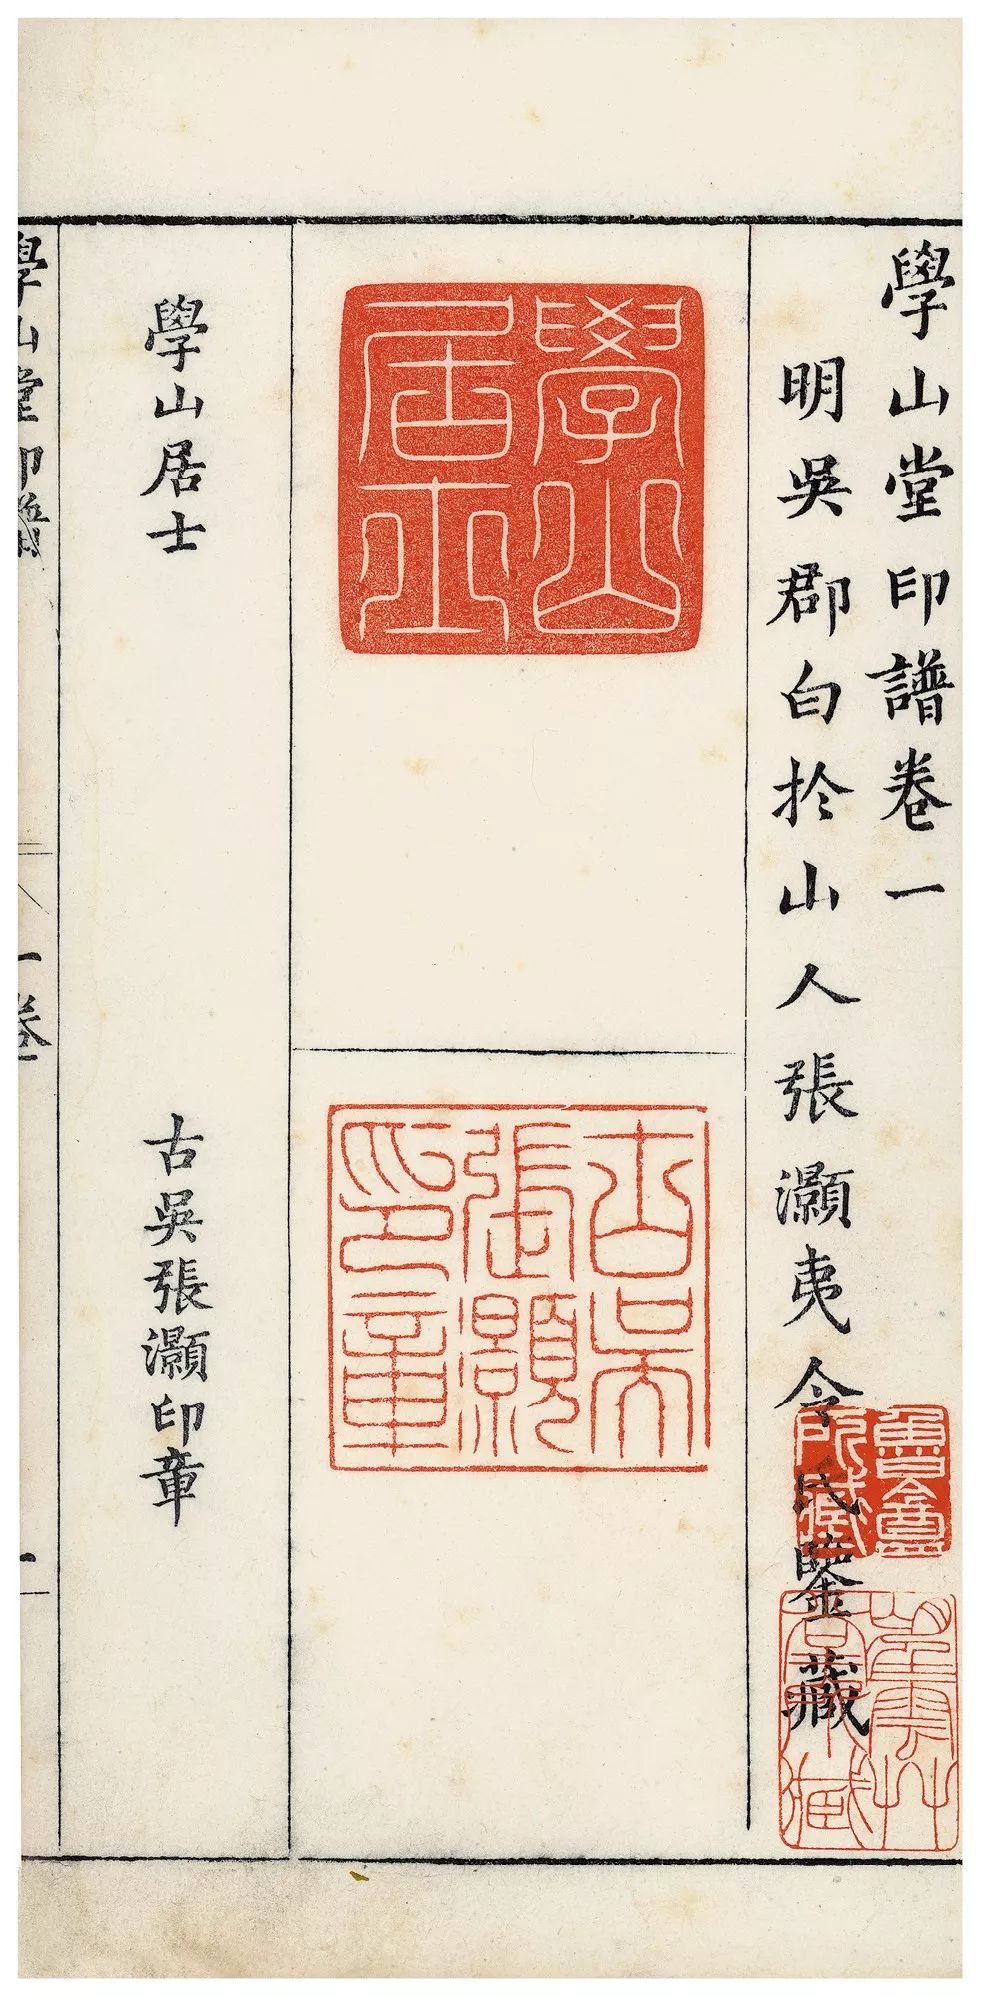 學山堂印譜卷一
明吳郡白扵山人張灝夷令氏鑒藏
魯盦所藏
學山居士
古吳張灝印章
學山居士
古吳張灝印章
學山堂印譜
卷
一